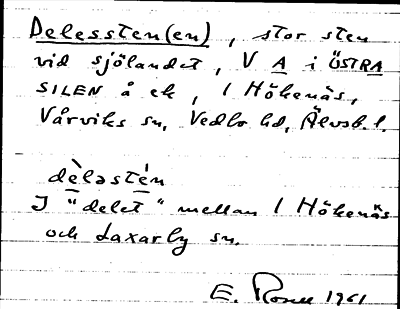 Delessten(en), stor sten
vid sjölandet, V A i ÖSTRA
SILEN å ek, 1 Hökenäs,
Vårviks sn, Vedbo hd, Älvsb. l.
dèləstén
I "delet" mellan 1 Hökenäs
och Laxarby sn.
E. 1961